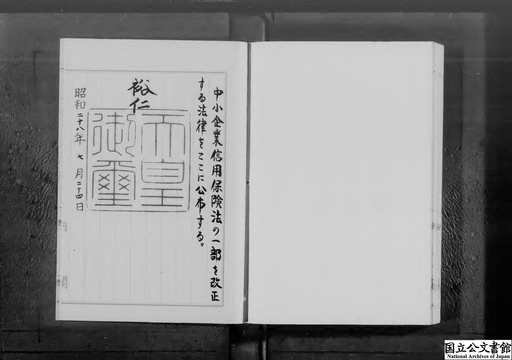 中小企業信用保険法の一部を改正
する法律をここに公布する。
裕仁
天皇
御璽
昭和二十八年七月二十四日
国立公文書館
National Archives of Japan